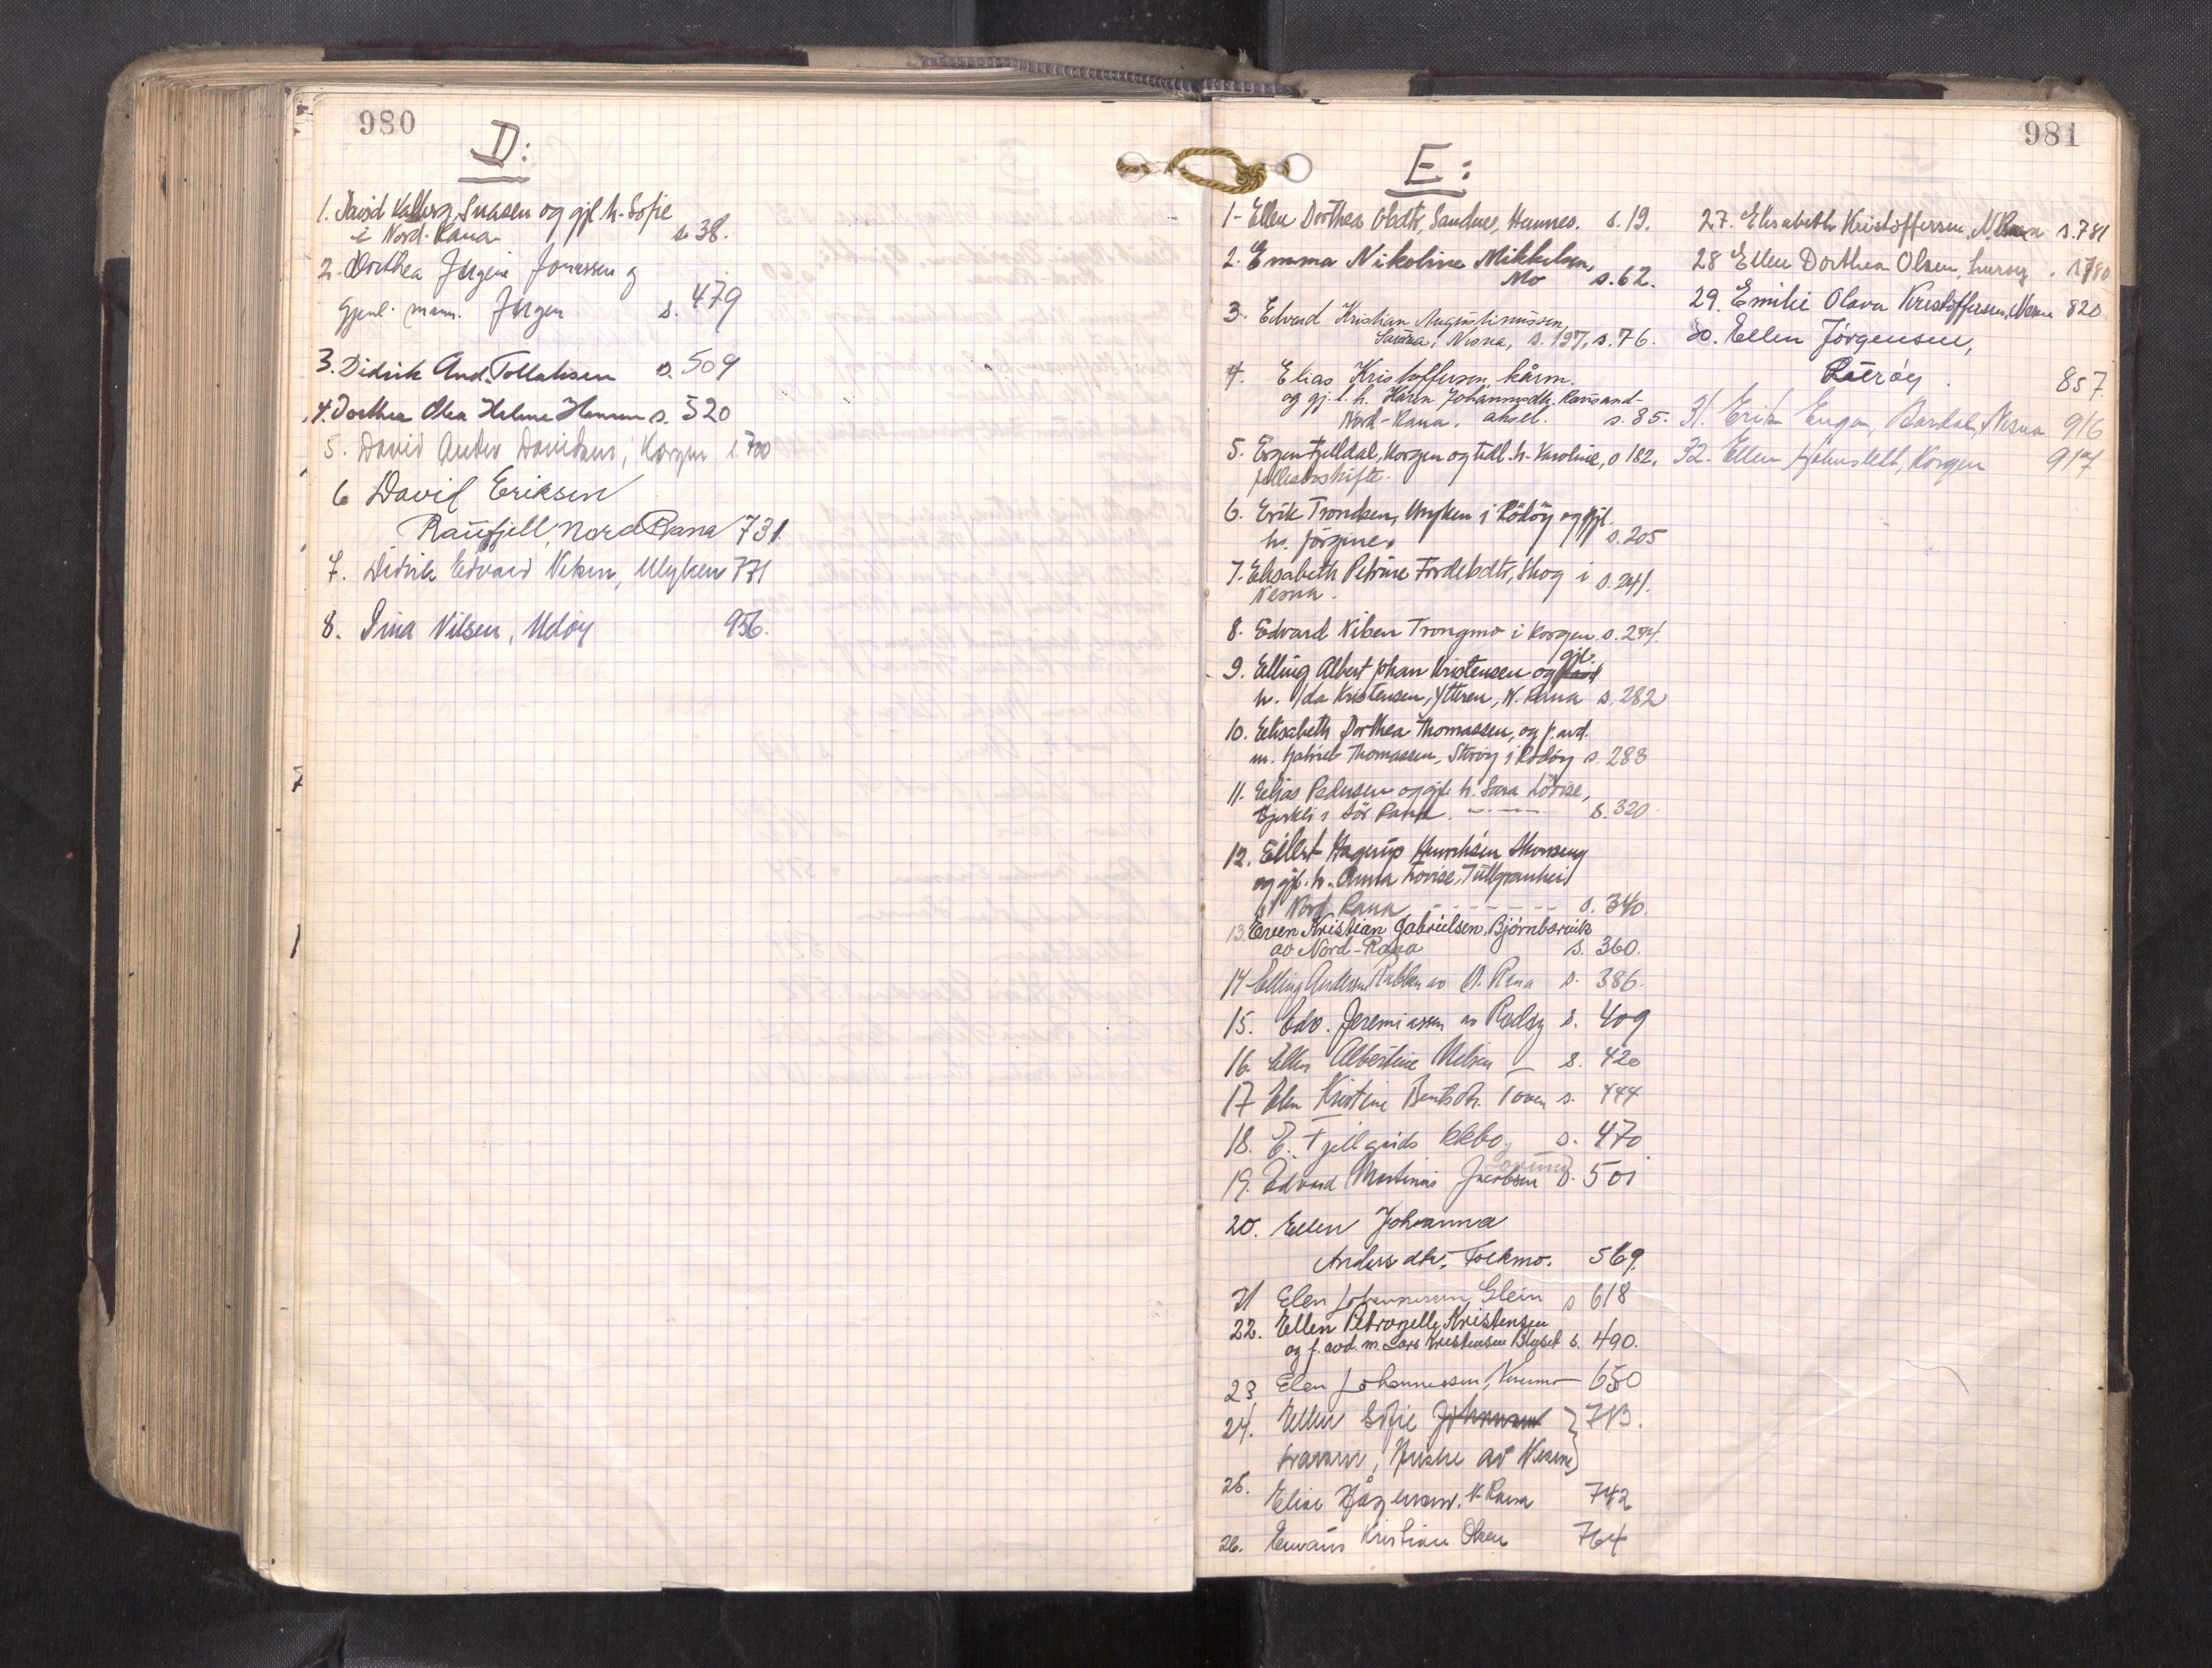 980
D:
1. David Valberg Snasen og gjl. h. Sofie
i Nord-Rana s. 38.
2. Dorthea Jørgine Jonassen og
Gjenl. mann. Jørgen s. 479
3. Didrik And. Tollaksen s. 509
4. Dorthea Olea Helene Hansen s. 520
5. David Anton Davidsen, Korgen s. 700
6 David Eriksen
Raufjell, Nord Rana 731
7. Didrik Edvard Niksen, Mlyken 771
8. Dina Nilsen, Meløy 956.
981
E:
1- Ellen Dorthea Olsdtr, Sandnes, Hemnes. s. 19.
2. Emma Nikoline Mikkelsen,
Mo s. 62.
3. Edvard Kristian Augustinussen,
Saura, Nesna, s. 197, s. 76.
4. Elias Kristoffersen kårm.
og gj. l. h. Karen Johannsdtr. Ravsand-
Nord-Rana. aksel. s. 85.
5. Ergen Fjelldal, Korgen og tidl. h. Karoline, s 182.
fellesboskifte.
6. Erik Trondsen, Myken i Rödöy og gjl.
h. Jörgine. s. 205
7. Elisabeth Petrine Fredeldtr, Skog i s. 241.
Nesna.
8. Edvard Nilsen Trongmo i Korgen s. 274.
9. Elling Albert Johan Kristensen og gjl.
h. Ida Kristensen, Ytteren, N. Rana s. 282
10. Elisabeth Dorthea Thomassen, og f. avd.
m. Gabriel Thomassen, Storöy i Rödöy s. 283
11. Elias Pedersen og gjl. h. Sara Lovise,
Bjerkli i Sör Rana. - - - s. 320
12. Eilert Hagerup Henriksen Skonseng
og gjl. h. Anna Lovise, Tullgranheid
i Nord Rana - - - - - - - s. 340.
13. Even Kristian Gabrielsen Bjørnbærvik
av Nord-Rana s. 360.
14 Elling Andersen Rabben av N. Rana s. 386.
15. Edv. Jeremiassen av Rødøy s. 409
16. Ellen Albertine Nilsen — s. 420
17 Elen Kristine Bentsdtr. Toven s. 444
18. E. Fjellgaids bkbo. s. 470
19. Edvard Martinus Jacobsen Lovund s. 501
20. Ellen Johanna
Andersdtr. Forkmo. 569.
21 Elen Johannessen, Glein s 618
22. Ellen Petronelle Kristensen
og f. avd. m. Lars Kristensen s. 490.
23 Elen Johannessen, 650
24. Ellen Sofie
av Nesna } 713.
25. Elise N. Rana 742
26. Kristian Olsen 764
27. Elisabeth Kristoffersen, N. Rana s. 781
28 Ellen Dorthea Olsen, Lurøy . s 780
29. Emilie Olava Kristoffersen, Nesna 820
30. Ellen Jørgensen,
857.
31. Erik Enga, Bardal, Nesna 916
32. Ellen Korgen 917